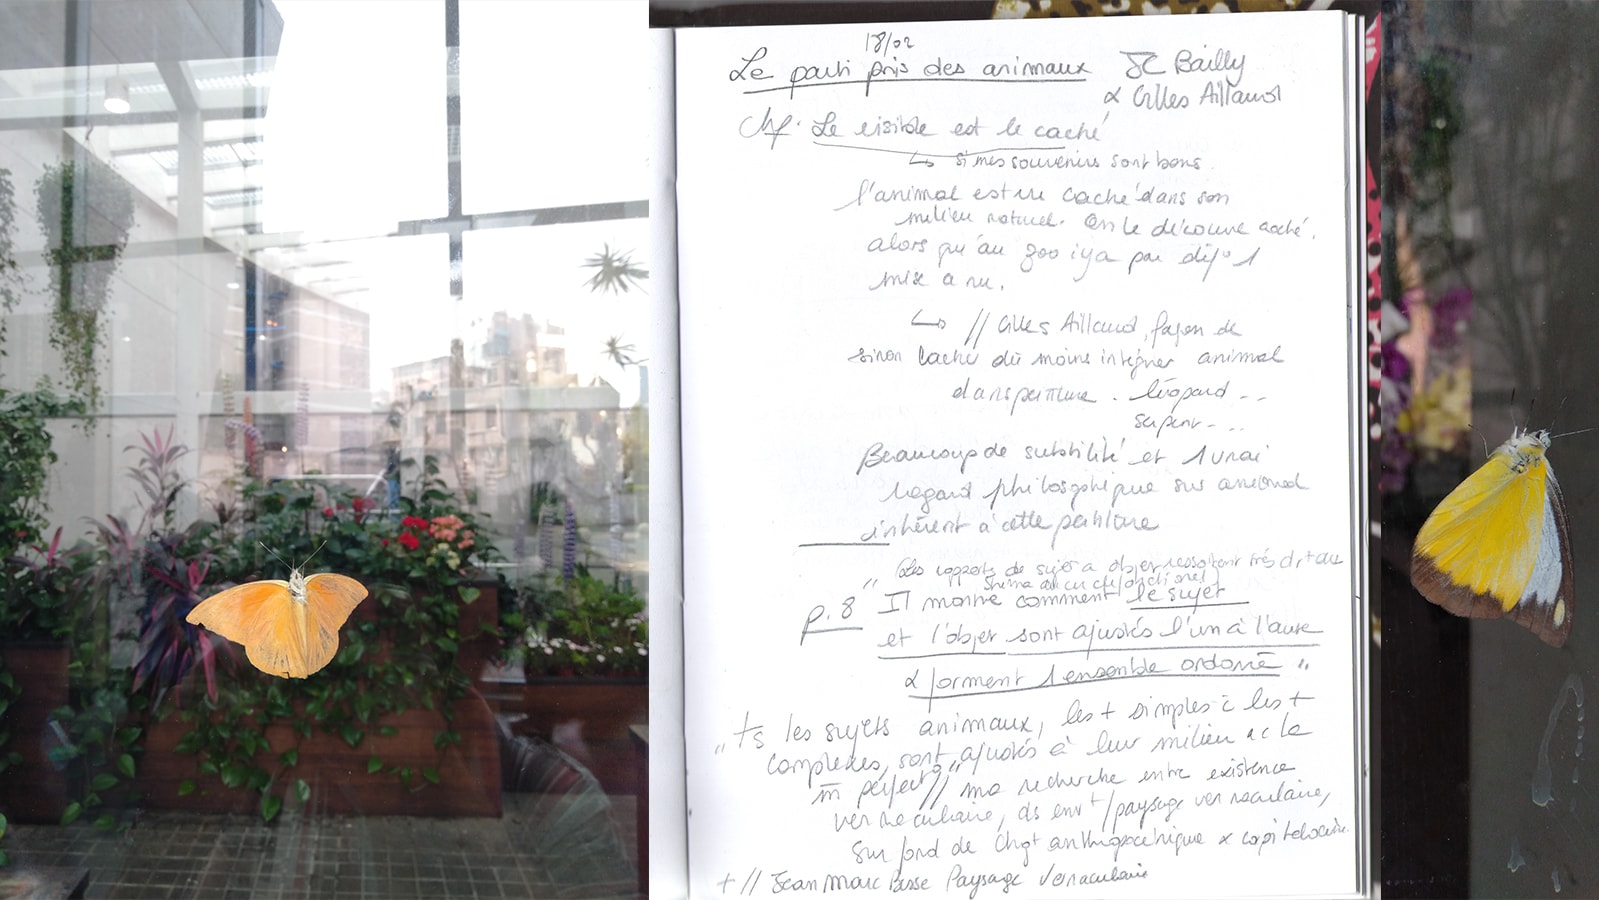 18/02
Le parti pris des animaux JC Bailly
& Gilles Aillaud
Chp. Le visible est le caché
↳ si mes souvenirs sont bons.
l'animal est vu caché dans son
milieu naturel. On le découvre caché.
alors qu'au zoo iya par déf° 1
mise à nu.
↳ // Gilles Aillaud, façon de
sinon caché du moins intégrer animal
dans peinture. léopard ..
serpent - ..
Beaucoup de subtilité et 1 vrai
regard philosophique sur animal
inhérent à cette peinture
„ Les rapports de sujet à objet ressortent très
schéma du cercle fonctionnel
p. 8 Il montre comment le sujet
et l'objet sont ajustés l'un à l'autre
& forment 1 ensemble ordonné "
„ ts les sujets animaux, les + simples c les +
complexes, sont ajustés à leur milieu ac la
m̄ perfect° „ // ma recherche entre existence
vernaculaire, ds envt / paysage vernaculaire,
sur fond de chgt anthropocénique x capitalocène
+ // Jean Marc Besse Paysage vernaculaire